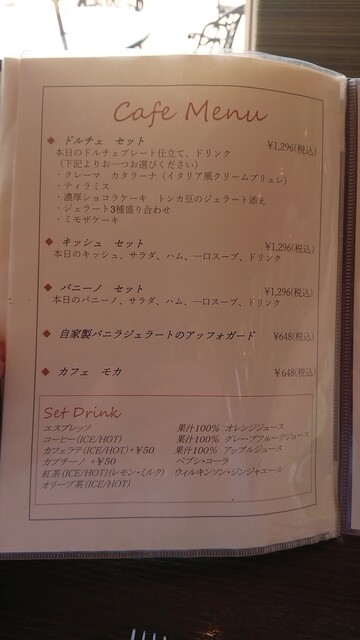 Cafe Menu
◆ ドルチェ セット ¥1,296(税込)
本日のドルチェプレート仕立て、ドリンク
(下記よりお一つお選びください)
・クレーマ カタラーナ(イタリア風クリームブリュレ)
・ティラミス
・濃厚ショコラケーキ トンカ豆のジェラート添え
・ジェラート3種盛り合わせ
・ミモザケーキ
◆ キッシュ セット ¥1,296(税込)
本日のキッシュ、サラダ、ハム、一口スープ、ドリンク
◆ パニーノ セット ¥1,296(税込)
本日のパニーノ、サラダ、ハム、一口スープ、ドリンク
◆ 自家製バニラジェラートのアッフォガード ¥648(税込)
◆ カフェ モカ ¥648(税込)
Set Drink
エスプレッソ 果汁100% オレンジジュース
コーヒー(ICE/HOT) 果汁100% グレープフルーツジュース
カフェラテ(ICE/HOT)+¥50 果汁100% アップルジュース
カプチーノ +¥50 ペプシ・コーラ
紅茶(ICE/HOT)(レモン・ミルク) ウィルキンソン・ジンジャエール
オリーブ茶(ICE/HOT)